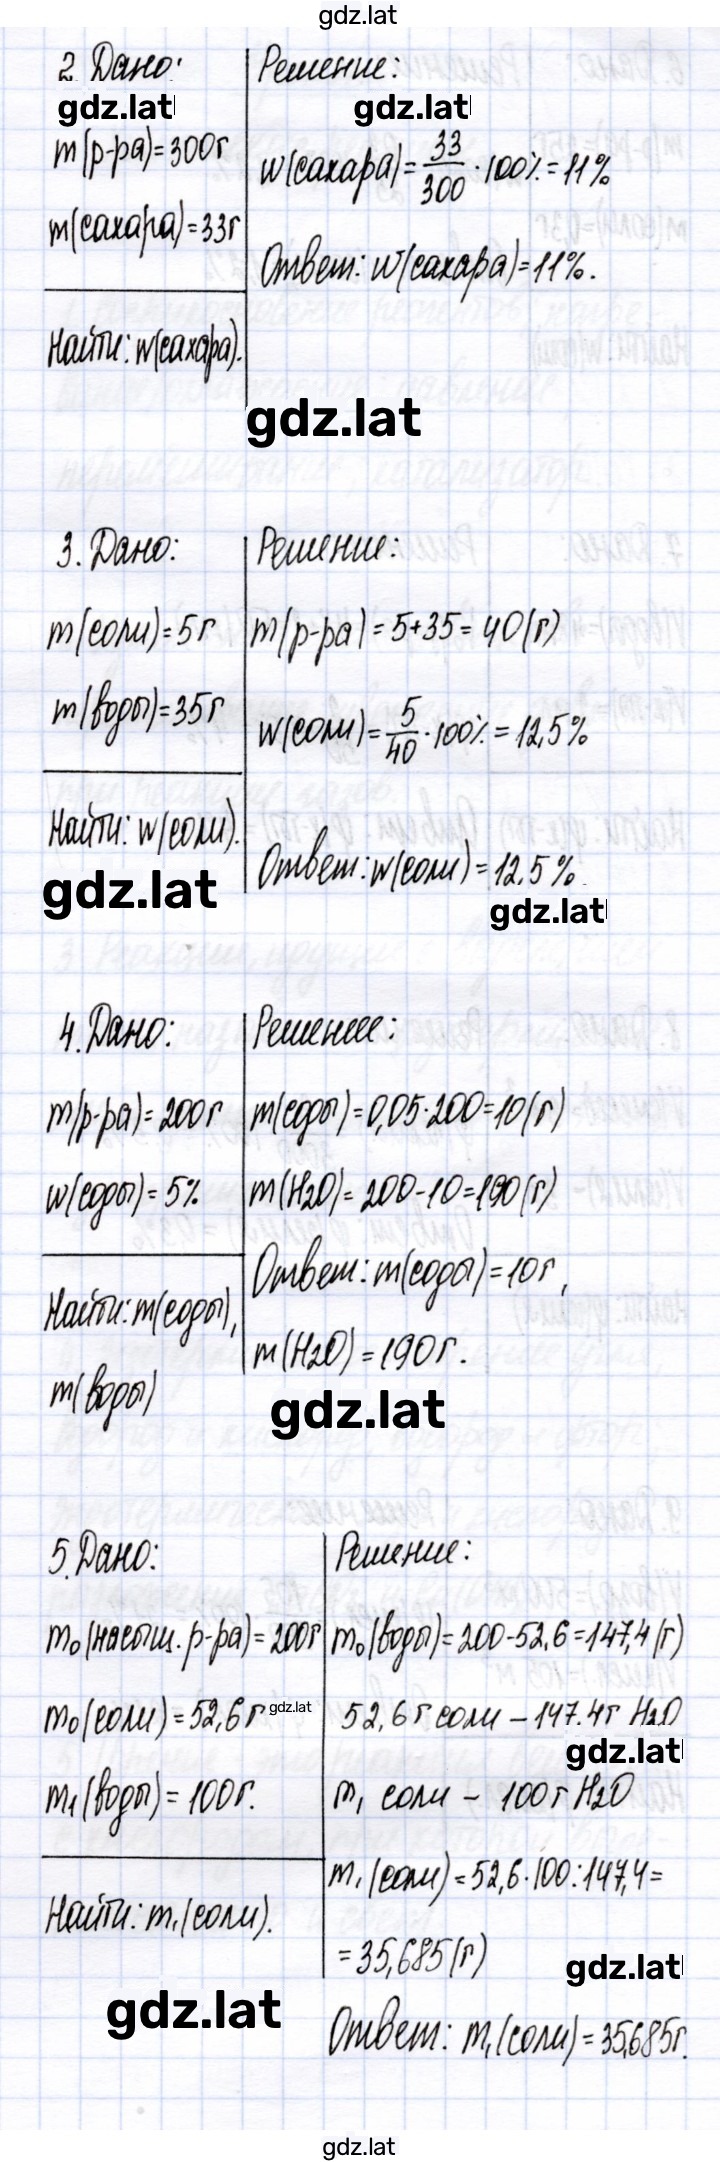 gdz.lat
2. Дано:
Решение:
gdz.lat
gdz.lat
m(р-ра)=300г
w(сахара)=33/300·100%=11%
m(сахара)=33г
Ответ: w(сахара)=11%.
Найти: w(сахара).
gdz.lat
3. Дано:
Решение:
m(соли)=5г
m(р-ра)=5+35=40(г)
m(воды)=35г
w(соли)=5/40·100%=12,5%
Найти: w(соли).
Ответ: w(соли)=12,5%.
gdz.lat
gdz.lat
4. Дано:
Решение:
m(р-ра)=200г
m(соды)=0,05·200=10(г)
w(соды)=5%
m(H2O)=200-10=190(г)
Ответ: m(соды)=10г,
Найти: m(соды),
m(H2O)=190г.
m(воды)
gdz.lat
5. Дано:
Решение:
m0(насыщ. р-ра)=200г
m0(воды)=200-52,6=147,4(г)
m0(соли)=52,6г
gdz.lat
52,6г соли – 147.4г H2O
gdz.lat
m1(воды)=100г.
m1 соли – 100г H2O
m1(соли)=52,6·100:147,4=
Найти: m1(соли).
=35,685(г)
gdz.lat
gdz.lat
Ответ: m1(соли)=35,685г.
gdz.lat